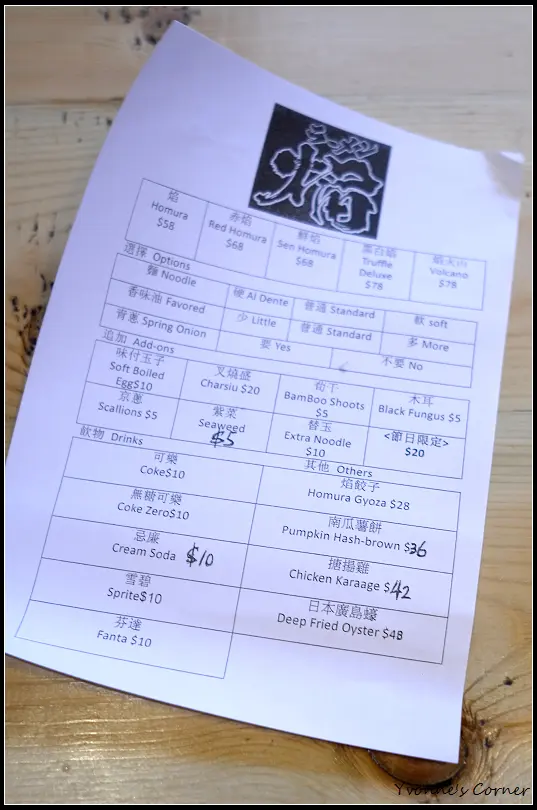 焰
焰
Homura
$58
赤焰
Red Homura
$68
鮮焰
Sen Homura
$68
黑白焰
Truffle
Deluxe
$78
焰火山
Volcano
$78
選擇 Options
麵 Noodle
硬 Al Dente
普通 Standard
軟 soft
香味油 Favored
少 Little
普通 Standard
多 More
青蔥 Spring Onion
要 Yes
不要 No
追加 Add-ons
味付玉子
Soft Boiled
Egg$10
叉燒盛
Charsiu $20
筍干
BamBoo Shoots
$5
木耳
Black Fungus $5
京蔥
Scallions $5
紫菜
Seaweed
$5
替玉
Extra Noodle
$10
<節日限定>
$20
飲物 Drinks
可樂
Coke$10
無糖可樂
Coke Zero$10
忌廉
Cream Soda $10
雪碧
Sprite$10
芬達
Fanta $10
其他 Others
焰餃子
Homura Gyoza $28
南瓜薯餅
Pumpkin Hash-brown $36
搪揚雞
Chicken Karaage $42
日本廣島蠔
Deep Fried Oyster $48
Yvonne's Corner